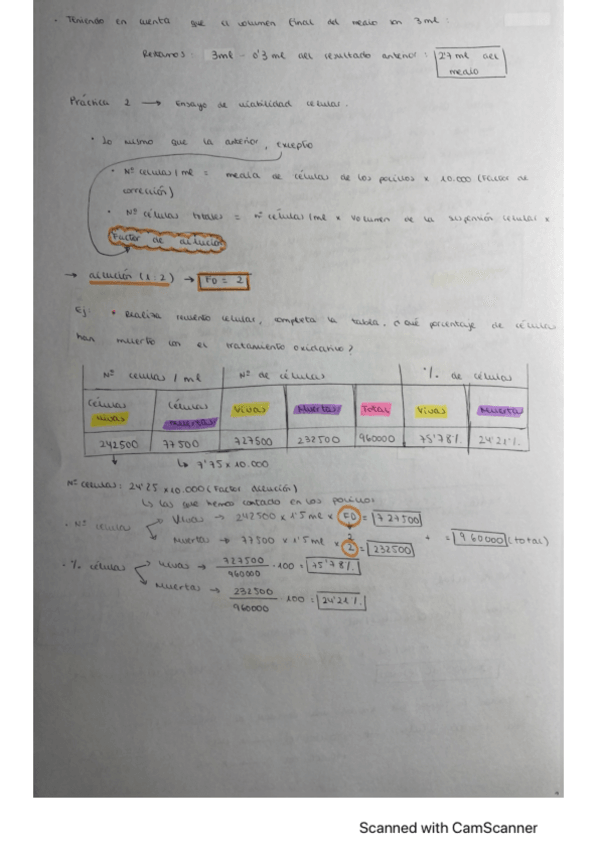 • Teniendo en cuenta que el volumen final del medio son 3ml:
Restamos: 3ml - 0'3 ml del resultado anterior: 2'7 ml del
medio
Práctica 2 → Ensayo de viabilidad celular.
• Lo mismo que la anterior, excepto
• Nº células/ml = media de células de los pocillos x 10.000 (Factor de
corrección)
• Nº células totales = nº células/ml x volumen de la suspensión celular x
Factor de dilución
→ dilución (1:2) → FD = 2
Ej: • Realiza recuento celular, completa la tabla. ¿Qué porcentaje de células
han muerto con el tratamiento oxidativo?
Nº células/ml Nº de células % de células
Células vivas Células muertas Vivas Muertas Total Vivas Muertas
242500 77500 727500 232500 960000 75'78% 24'21%
↳ 7'75 x 10.000
Nº células: 24'25 x 10.000 (Factor dilución)
↳ las que hemos contado en los pocillos
• Nº células Vivas → 242500 x 1'5 ml x FD = 727500
2
Muertas → 77500 x 1'5 ml x 2 = 232500 + = 960000 (total)
• % células Vivas → 727500/960000 · 100 = 75'78%
Muertas → 232500/960000 · 100 = 24'21%
Scanned with CamScanner